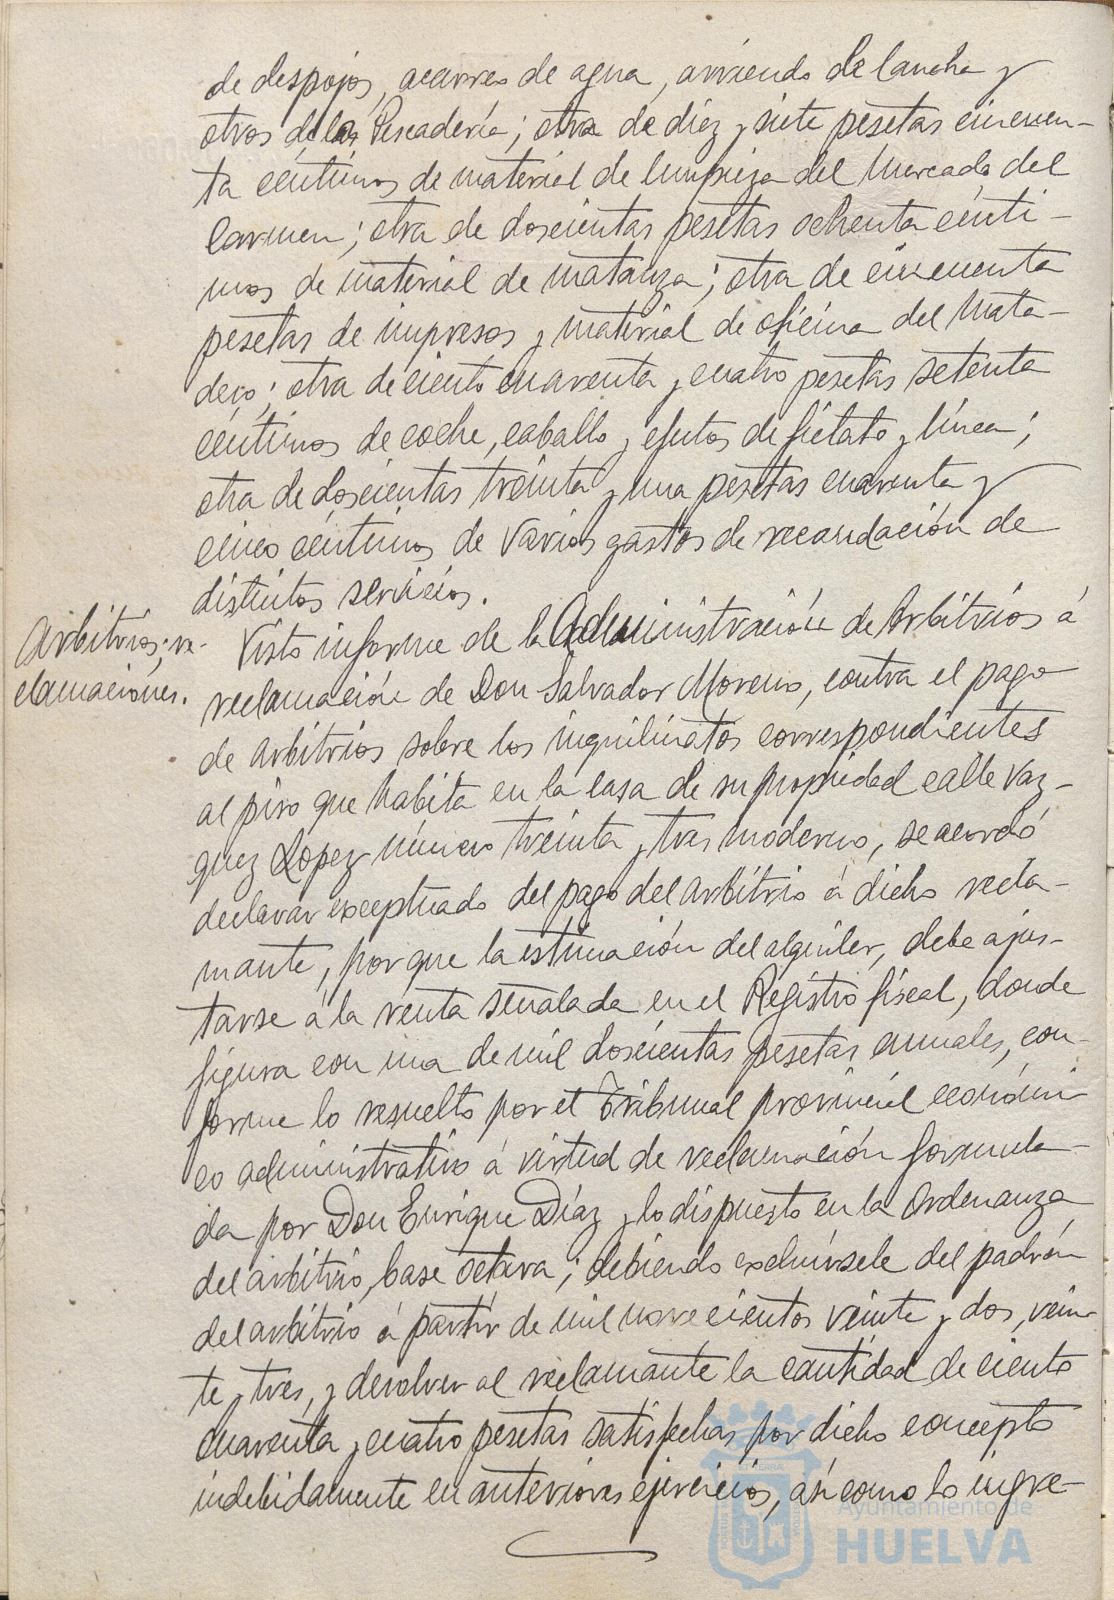 de despojos, acarreo de agua, arriendo de lancha y
otros de las Pescadería; otra de diez y siete pesetas cincuen-
ta céntimos de material de limpieza del Mercado del
Carmen; otra de doscientas pesetas ochenta cénti-
mos de material de matanza; otra de cincuenta
pesetas de impresos y material de oficina del Mata-
dero; otra de ciento cuarenta y cuatro pesetas setenta
céntimos de coche, caballo y efectos de fielato y línea;
otra de doscientas treinta y una pesetas cuarenta y
cinco céntimos de varios gastos de recaudación de
distintos servicios.
Arbitrios; re-
clamaciones.
Visto informe de la Administración de Arbitrios á
reclamación de Don Salvador Moreno, contra el pago
de arbitrios sobre los inquilinatos correspondientes
al piso que habita en la casa de su propiedad calle Vaz-
quez Lopez número treinta y tres moderno, se acordó
declarar exceptuado del pago del arbitrio á dicho recla-
mante, por que la estimación del alquiler, debe ajus-
tarse á la renta señalada en el Registro fiscal, donde
figura con una de mil doscientas pesetas anuales, con-
forme lo resuelto por el Tribunal provincial económi
co administrativo á virtud de reclamación formula-
da por Don Enrique Díaz y lo dispuesto en la Ordenanza
del arbitrio, base octava; debiendo excluírsele del padrón
del arbitrio á partir de mil novecientos veinte y dos, vein-
te y tres, y devolver al reclamante la cantidad de ciento
cuarenta y cuatro pesetas satisfechas por dicho concepto
indebidamente en anteriores ejercicios, así como lo ingre-
Ayuntamiento de
HUELVA